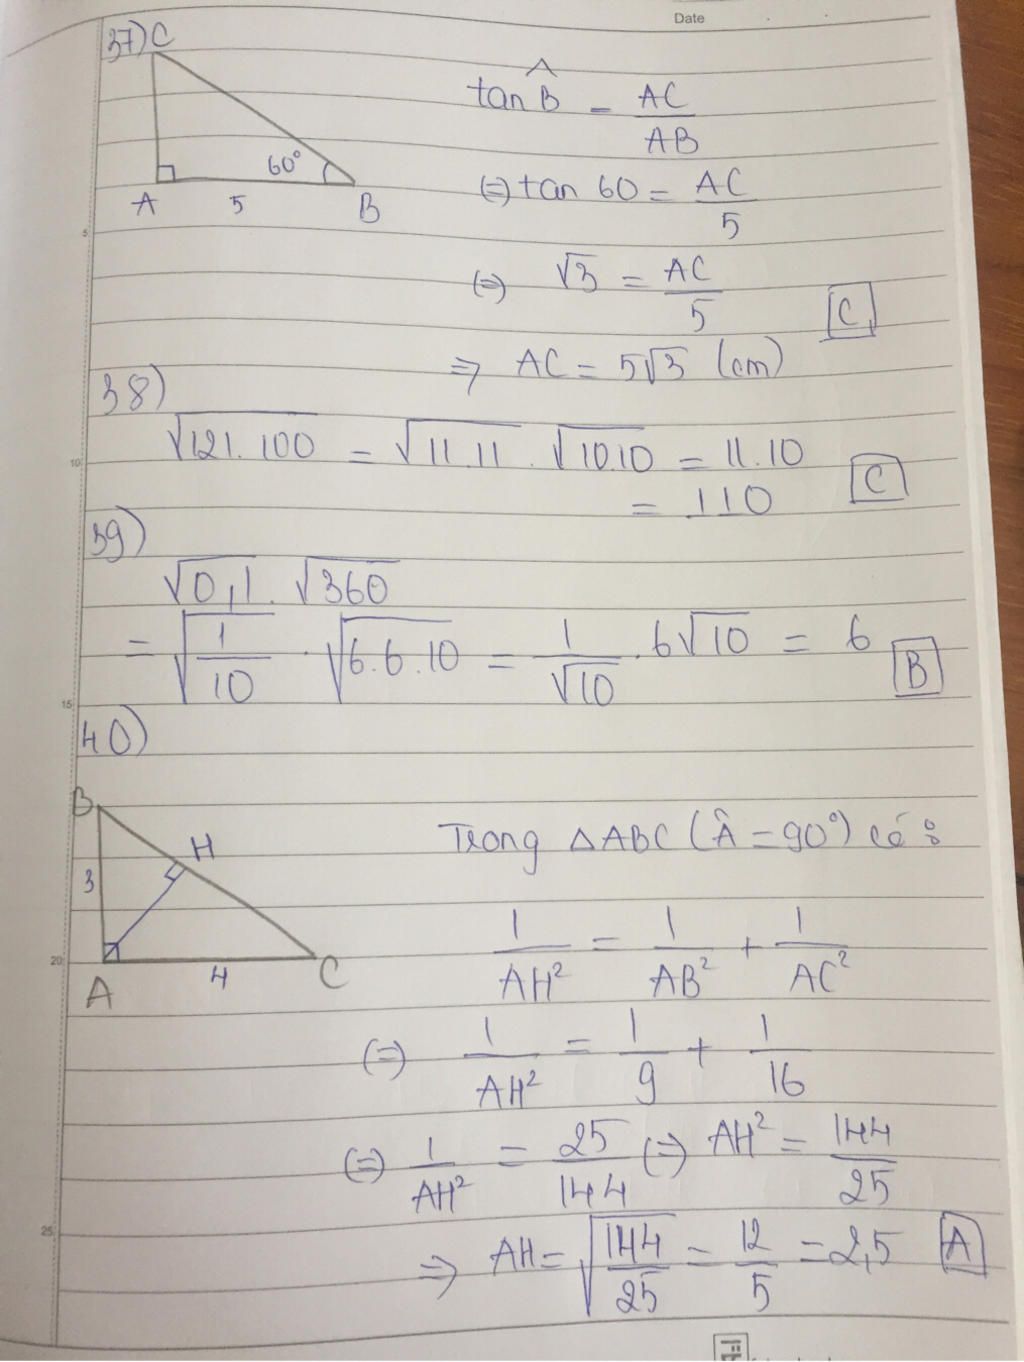 Date
37)
C
A
5
B
60°
tan B̂ = AC/AB
(=) tan 60 = AC/5
(=) √3 = AC/5
C
=> AC = 5√3 (cm)
38)
√121.100 = √11.11 . √10.10 = 11.10
= 110
C
39)
√0,1 . √360
= √(1/10) . √6.6.10 = 1/√10 . 6√10 = 6
B
40)
B
H
3
A
4
C
Trong △ABC (Â = 90°) có :
1/AH² = 1/AB² + 1/AC²
(=) 1/AH² = 1/9 + 1/16
(=) 1/AH² = 25/144 (=) AH² = 144/25
=> AH = √(144/25) = 12/5 = 2,5
A
5
10
15
20
25